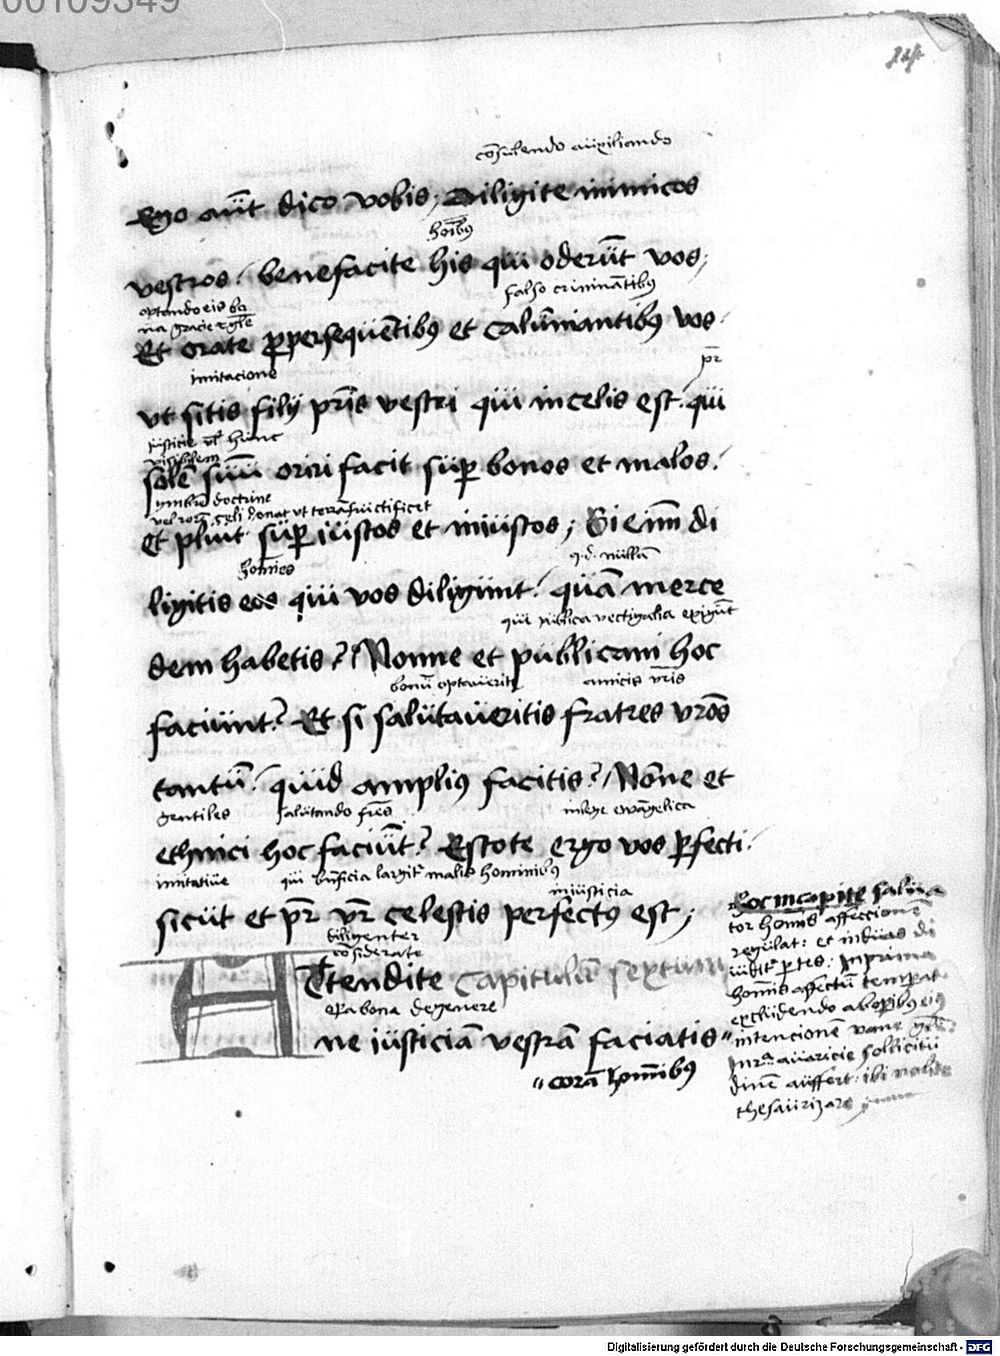 00109349
consulendo auxiliando
Ego aut̄ dico vobis; Diligite inimicos
ho̅ibꝰ
vestros / benefacite his qui oderūt vos;
falso criminātibꝰ
optando eis bo
na gracie et glē
Et orate ꝓ persequētibꝰ et calūniantibꝰ vos /
imitacione
pr̄
vt sitis filij pr̄is vestri qui in celis est / qui
iusticie vl̄ hunc
visibilem
solē suū oriri facit suꝑ bonos et malos /
ymbrē doctrine
vel rorē celi donat vt terra fructificet
et pluit suꝑ iustos et iniustos; Si eni̅ di
ho̅ies
q. d. nullā
ligitis eos qui vos diligunt / quā merce
qui publica vectigalia exigūt
dem habetis? Nonne et publicani hoc
bonū optaueritis
amicis vr̄is
faciunt? Et si salutaueritis fratres vr̄os
tantū / quid ampliꝰ facitis? Nōne et
gentiles salutando fr̄es in lege ewāgelica
ethnici hoc faciūt? Estote ergo vos ꝑfecti /
imitatiue qui bn̄ficia largit̄ malis hominibꝰ
in iusticia
sicut et pr̄ vr̄ celestis perfectꝰ est;
diligenter
considerate
Attendite Capitulū sextum
oꝑa bona de genere
ne iusticiā vestrā faciatis
corā ho̅ibꝰ
Hoc in capite salua
tor ho̅is affeccionē
regulat: et in duas di
uidit̄ ꝑtes. In prima
ho̅is affectū temperat
excludendo ab oꝑibꝰ eiꝰ
intencionē vane glē
auaricie sollicitu
dinē auffert: ibi nolite
thesaurizare
Digitalisierung gefördert durch die Deutsche Forschungsgemeinschaft - DFG